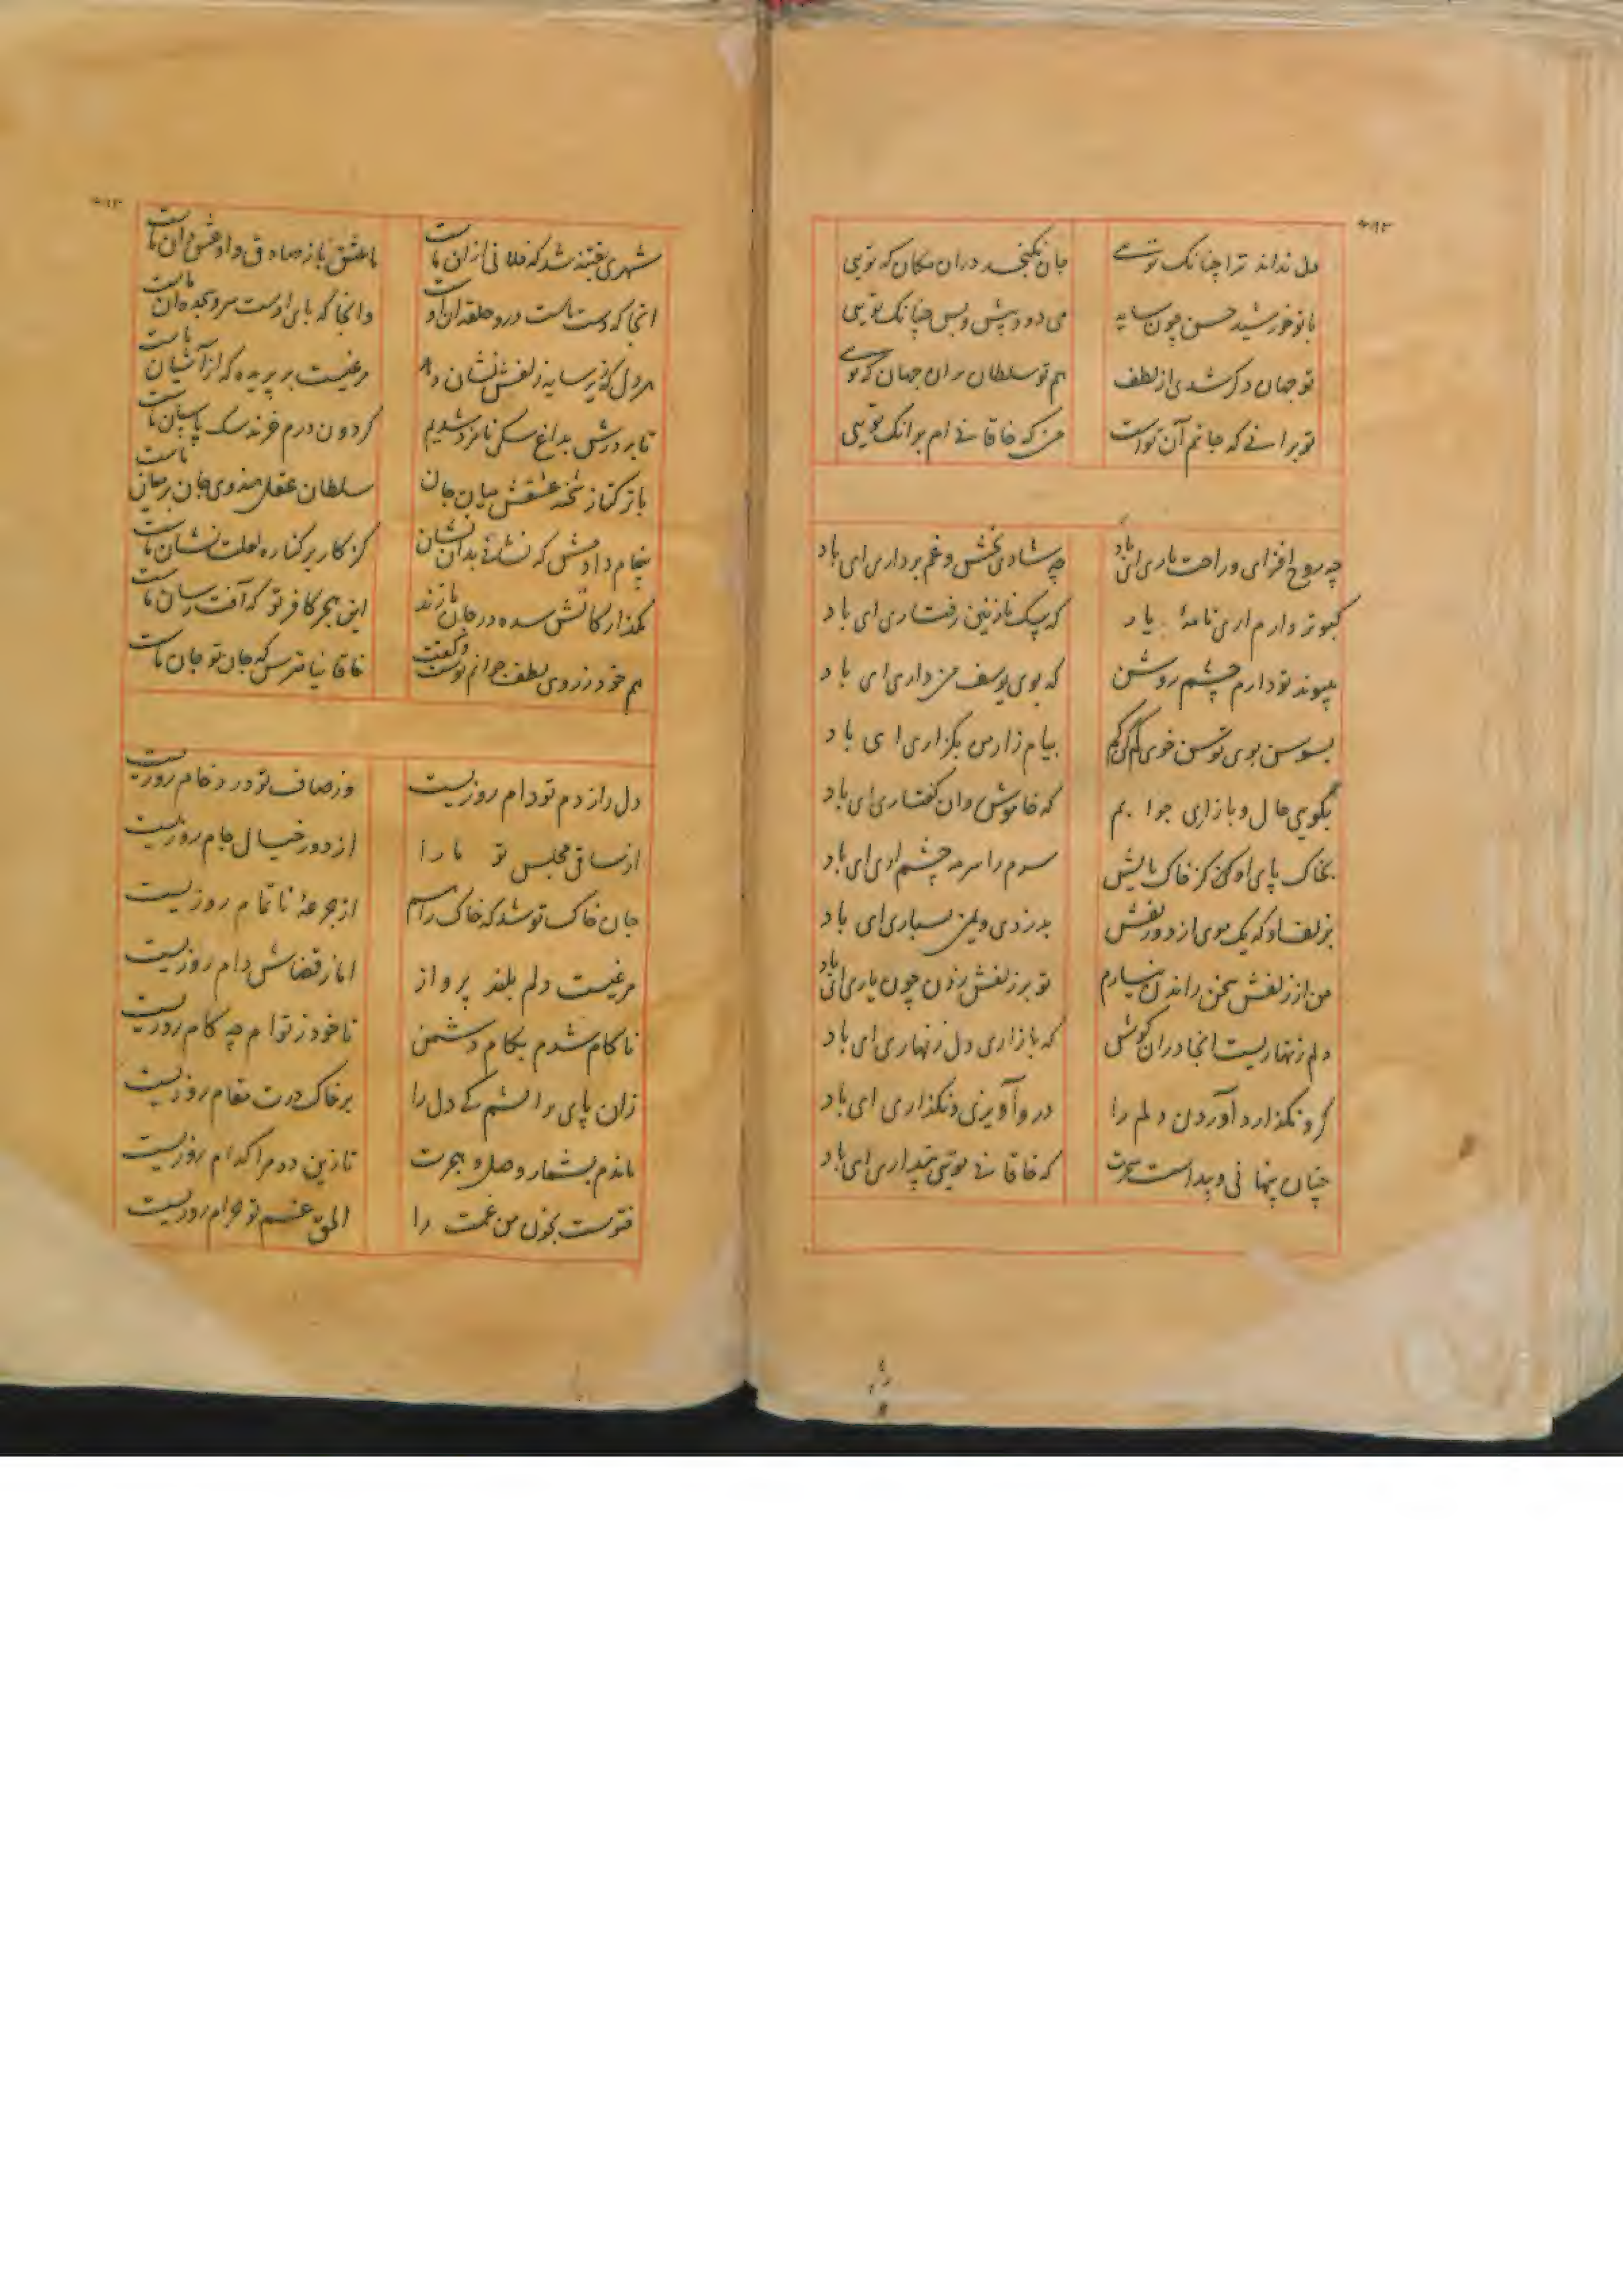 دل نداند ترا چنانک تویی
جان نگنجد در ان مکان که تویی
با تو خورشید حسن چون سایه
می دود پیش و پس چنانک تویی
تو جهان دکر شدی از لطف
هم تو سلطان بران جهان که تویی
تو برانے که جانم آن تو است
من که خاقانے ام بر انک تویی
چه روح افزای و راحت باری ای باد
چه شادی بخش و غم برداری ای باد
کبوتر وارم اری نامهٔ یار
که پیک نازنین رفتاری ای باد
بپیوند تو دارم چشم روشن
که بوی یوسف من داری ای باد
بسوسن بوی توسن خوی
پیام زار من بکزاری ای باد
بگویی حال و بازاری جوابم
که خاموش روان کفتاری ای باد
بخاک پای او کز خاک پایش
سرم را سرمه چشم اری ای باد
بزلف او که یک موی از دو زلفش
بدزدی و بمن بسپاری ای باد
من از زلفش سخن راندن نیارم
تو بر زلفش زدن چون یاری ای باد
دلم زنهاریست انجا در ان کوش
که بازاری دل زنهاری ای باد
کر و نکذارد آوردن دلم را
درو آویزی و نکذاری ای باد
چنان پنهانی و پیداست سحرت
که خاقانے تویی پنداری ای باد
شهری بفتنه شد که فلانی ازان ماست
ما عشق باز صادق و او عشق دان ماست
انجا که دست ماست درو حلقه ان او
وانجا که پای اوست سر و سجده دان ماست
هر دل که زیر سایه زلفش نشان دهد
مرغیست بر پریده که از آشیان ماست
تا بر درش بداغ سکی نامزد شدیم
کردون درم خرند سک پاسبان ماست
باز ترکتاز شحنه عشقش میان جان
سلطان عقل هندوی جان بر میان ماست
پیغام دادمش که نشانی بدان نشان
کز کار بر کناره لعلت نشان ماست
بکذار کاتش سده در جان ما زند
این هجر کافر تو که آفت رسان ماست
هم خود ز روی لطف جوابم نوشت و کفت
خاقانیا مترس که جان تو جان ماست
دل را ز دم تو دام روزیست
وز صاف تو درد خام روزیست
از ساقی مجلس تو ما را
از دور خیال جام روزیست
جان خاک تو شد که خاک را هم
از جرعهٔ ناتمام روزیست
مرغیست دلم بلند پرواز
اما ز قضاش دام روزیست
ناکام شدم بکام دشمن
تا خود ز توام چه کام روزیست
زان پای بر اتشم که دل را
بر خاک درت مقام روزیست
ماندم بشمار وصل و هجرت
تا زین دو مرا کدام روزیست
فتویست بخون من غمت را
الحق غم تو حرام روزیست